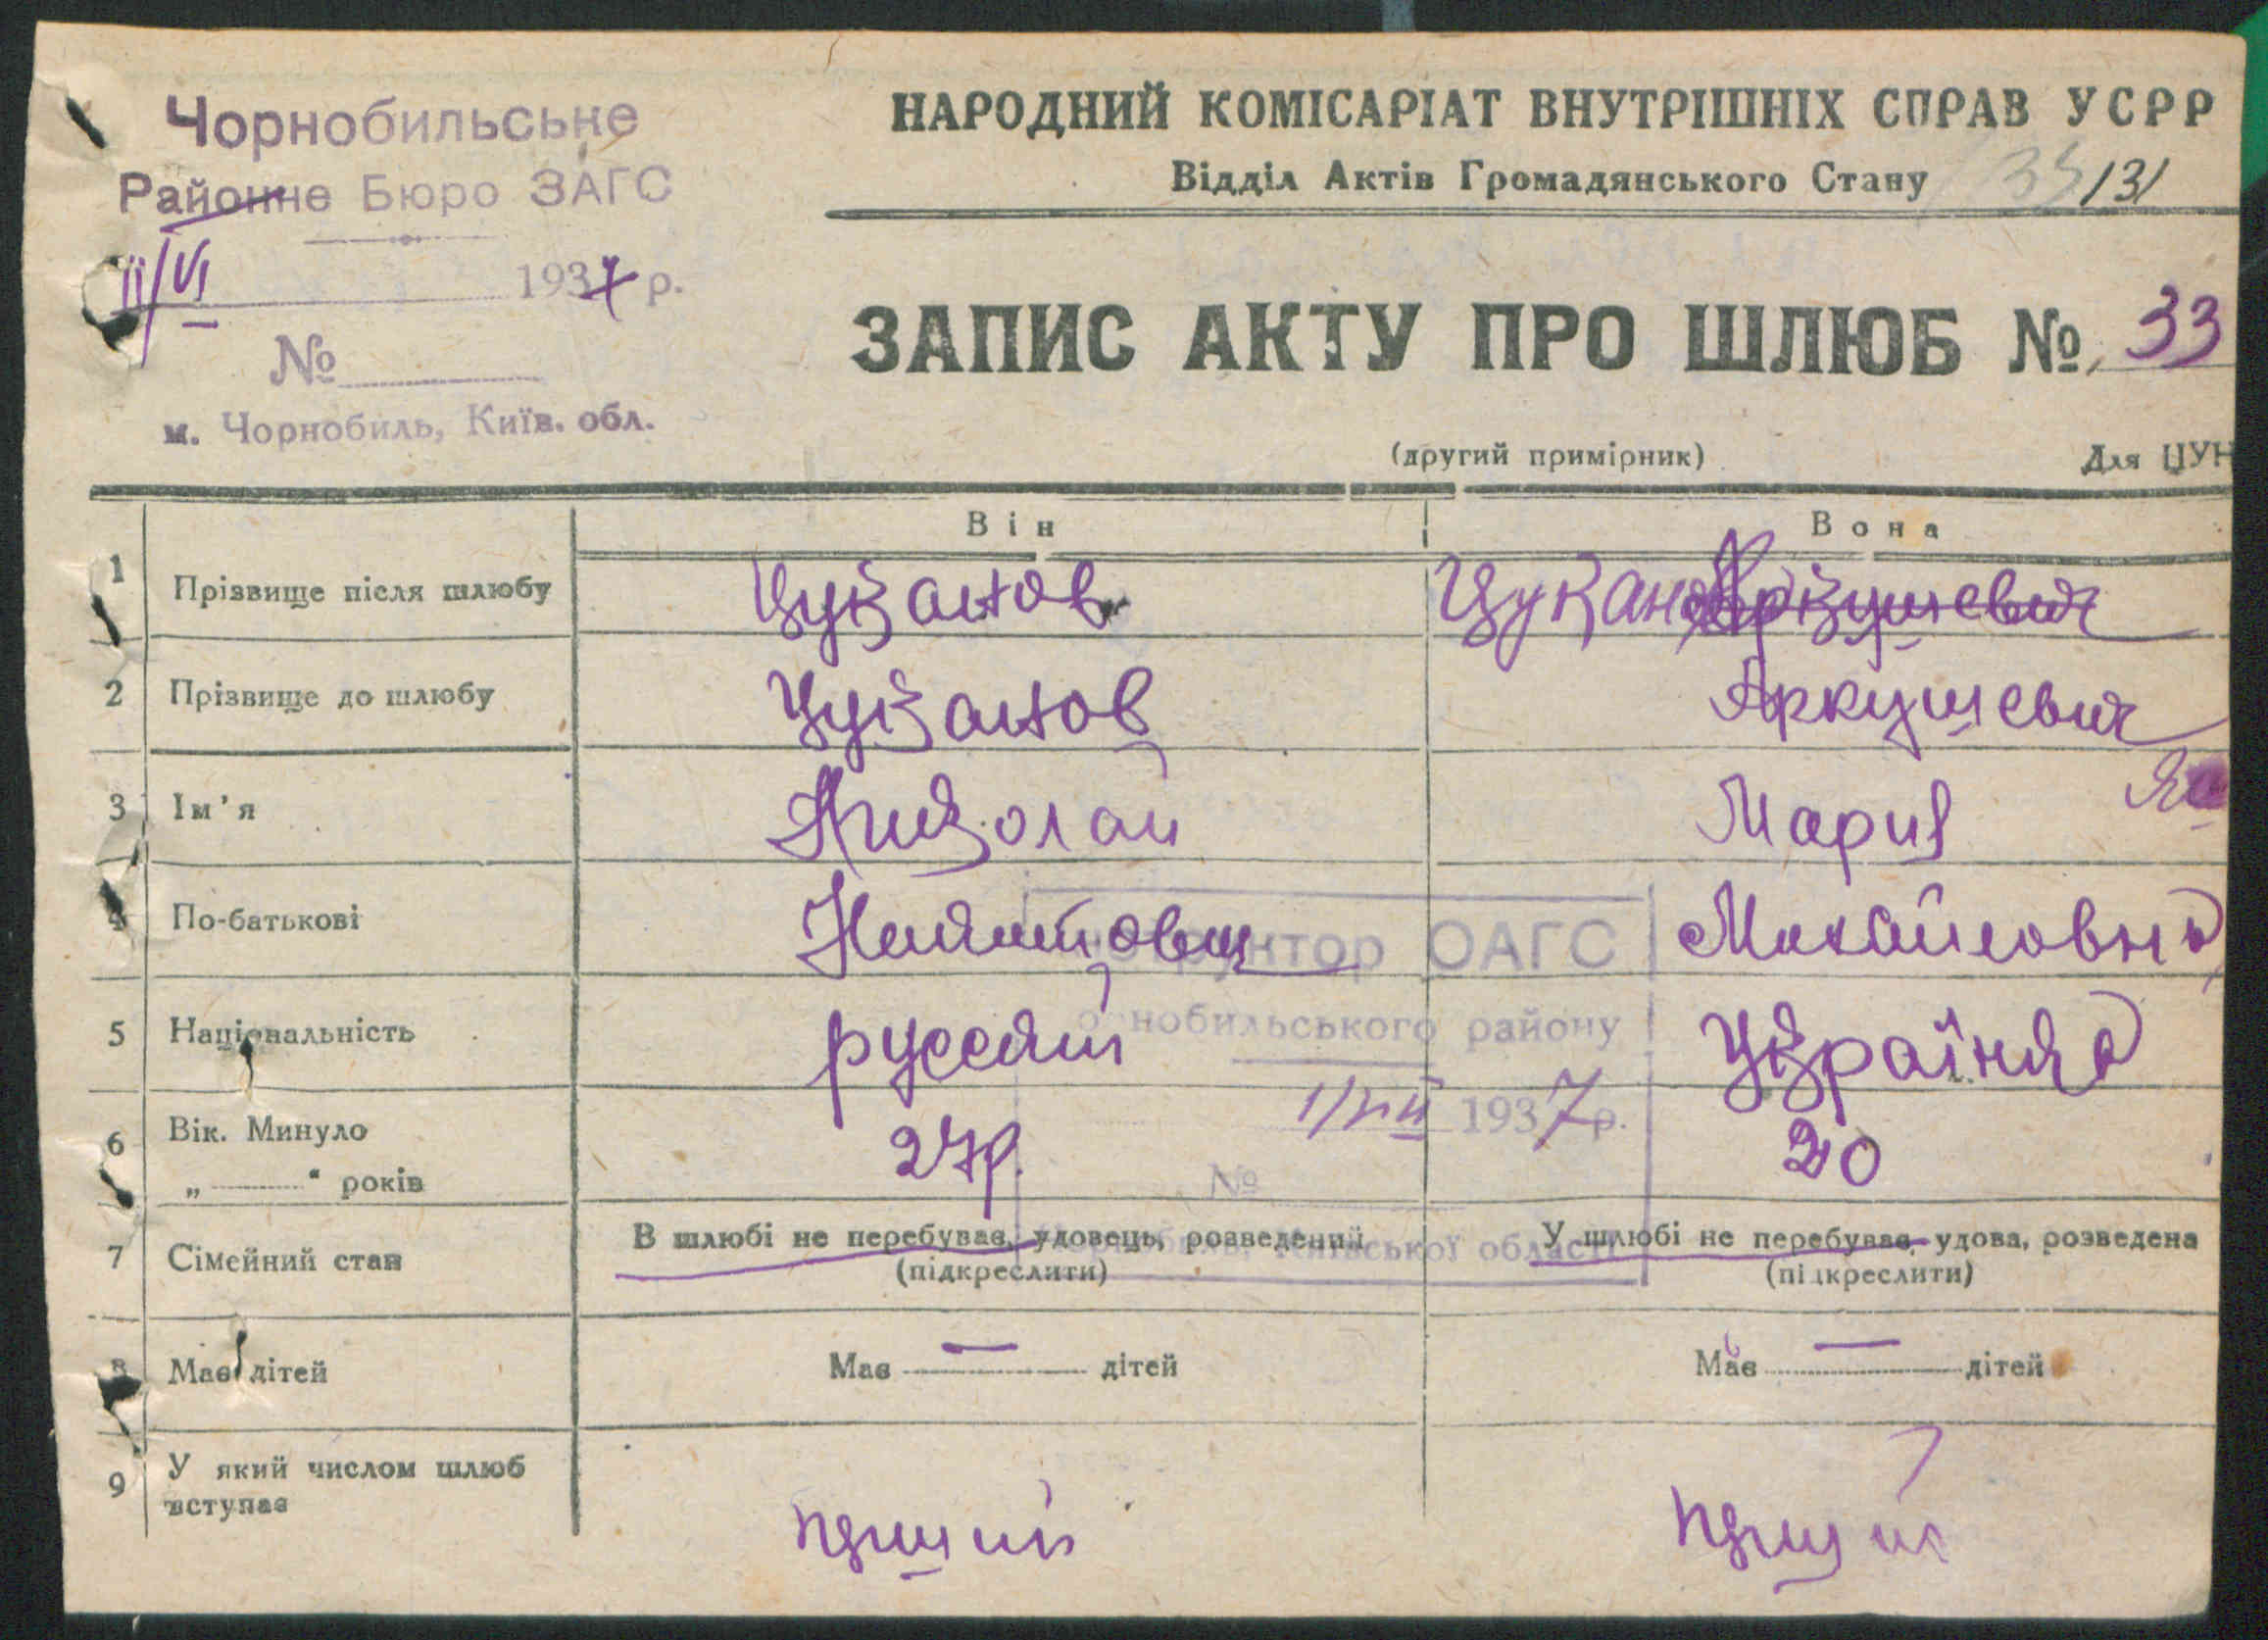 Чорнобильське
Районне Бюро ЗАГС
II/VI 1937 р.
№
м. Чорнобиль, Київ. обл.
НАРОДНИЙ КОМІСАРІАТ ВНУТРІШНІХ СПРАВ УСРР
Відділ Актів Громадянського Стану
131
ЗАПИС АКТУ ПРО ШЛЮБ № 33
(другий примірник) Для ЦУН
Він Вона
1 Прізвище після шлюбу Цуканов Цуканов Аркушевич
2 Прізвище до шлюбу Цуканов Аркушевич
3 Ім'я Николай Мария
4 По-батькові Михайловна
структор ОАГС
5 Національність русский Українка
рнобильського району
6 Вік. Минуло 27р. 20
„ “ років
1/VIII 1937 р.
№
7 Сімейний стан В шлюбі не перебував, удовець, розведений У шлюбі не перебувала, удова, розведена
(підкреслити) (підкреслити)
Київської області
8 Має дітей Має — дітей Має — дітей
9 У який числом шлюб вступає перший перший